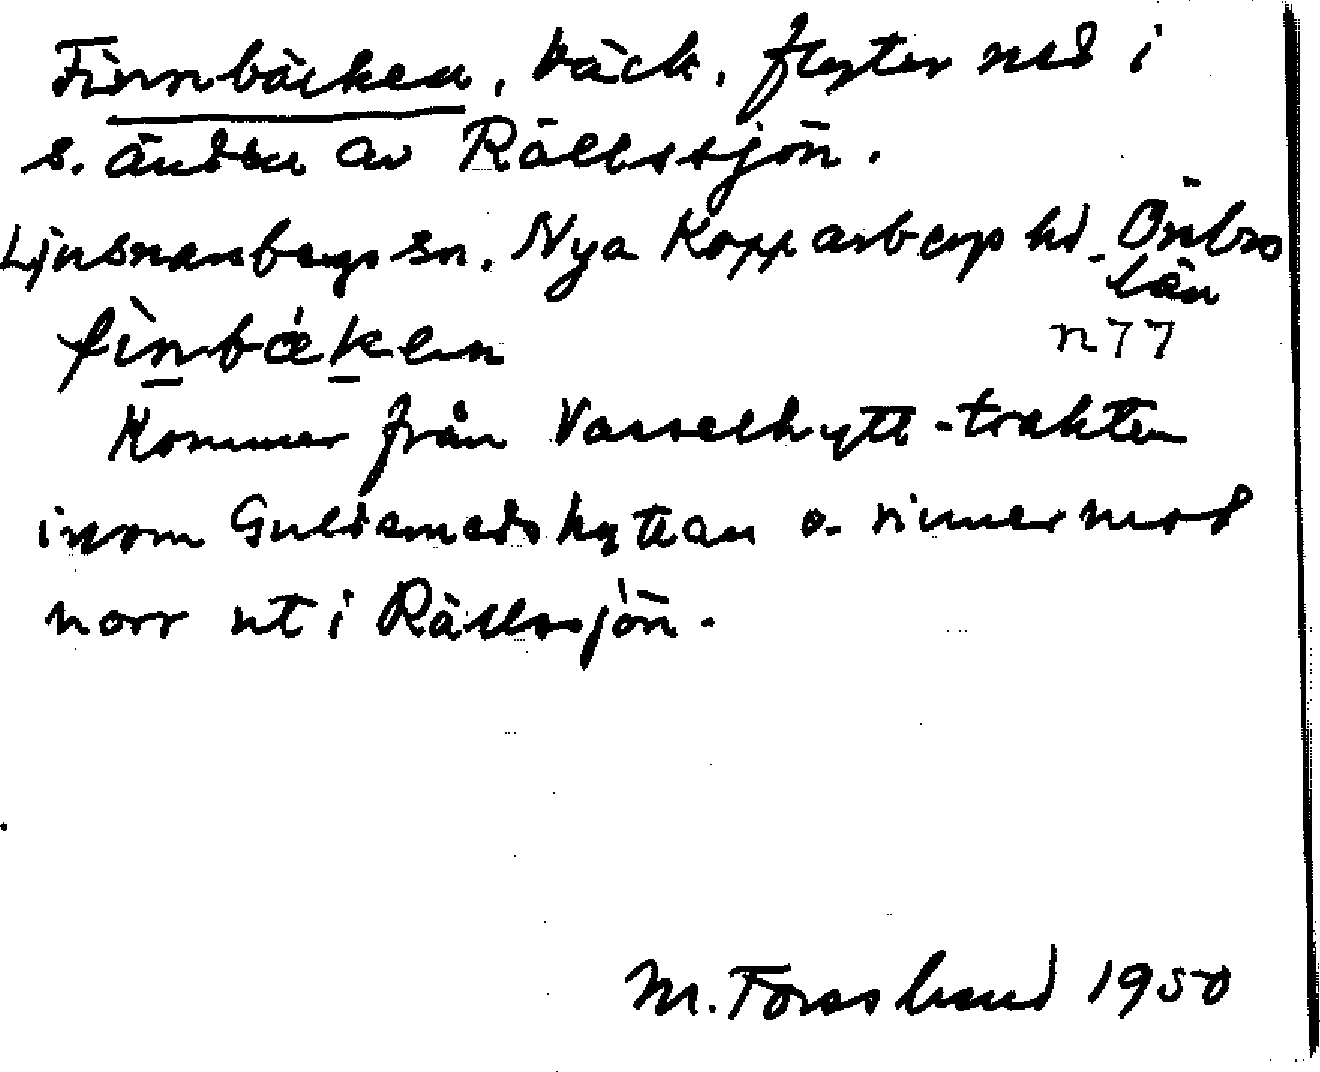 Finnbäcken, bäck, flyter ned i
s. ändan av Rällssjön.
Ljusnarsbergs sn. Nya Kopparbergs hd. Örebro
län
fìnbæken n77
Kommer från Vasselhytte-trakten
inom Guldsmedshyttan o. rinner mot
norr ut i Rällssjön.
M. Forsslund 1950